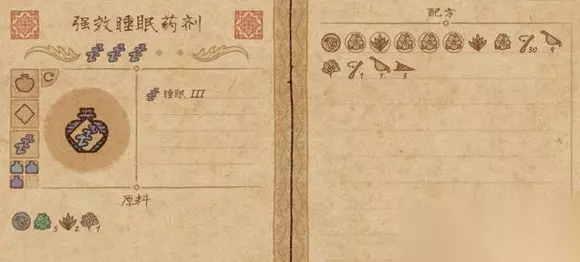 强效睡眠药剂
睡眠 III
原料
5 2 1
配方
30 4
1 1 3